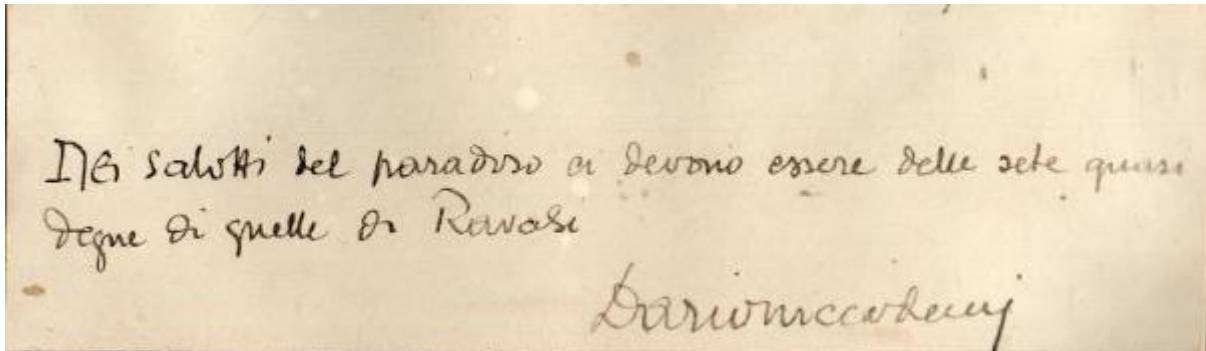 Nei salotti del paradiso ci devono essere delle sete quasi
degne di quelle di Ravasi
Dario Niccodemi